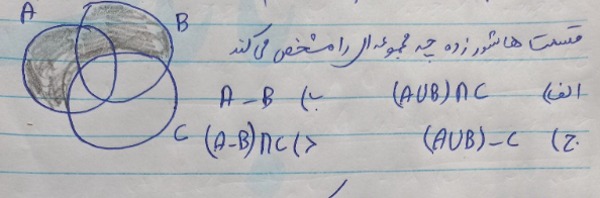 A
B
قسمت هاشور زده چه مجموعه ای را مشخص می کند
الف) (A∪B)∩C ب) A-B
ج) (A∪B)-C د) (A-B)∩C
C